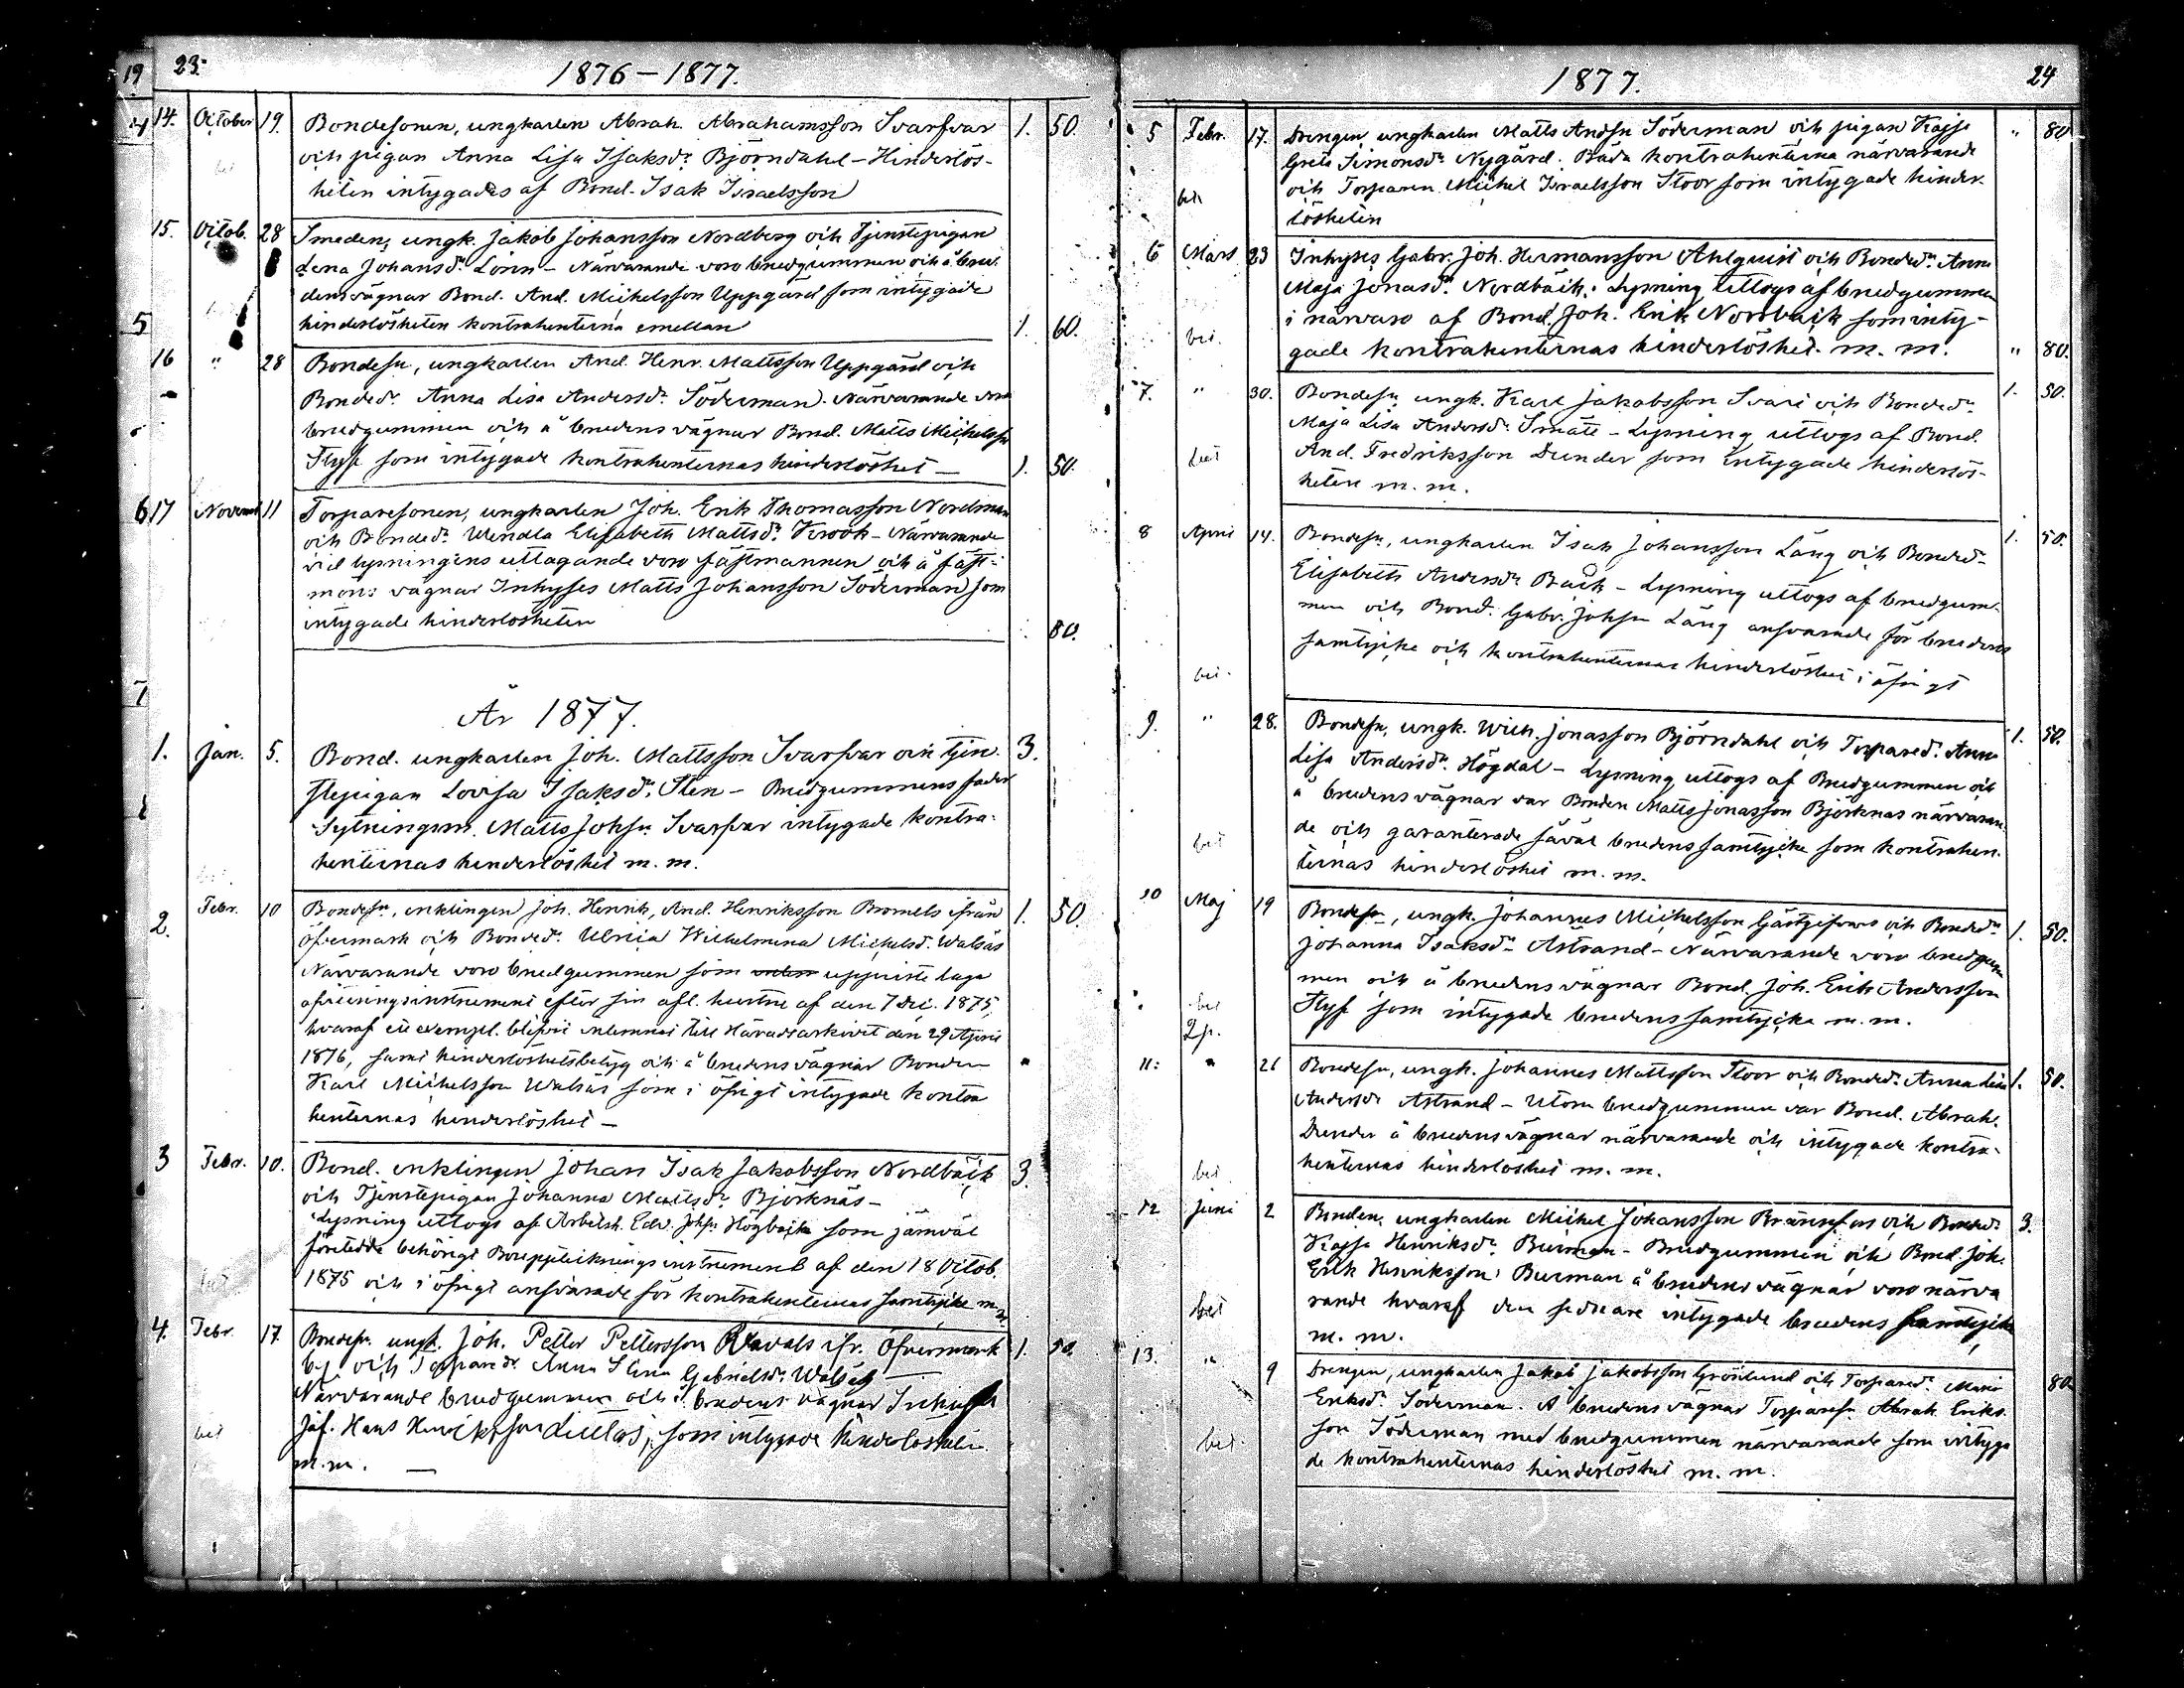 19 23. 1876–1877.
14. October 19. Bondesonen, ungkarlen Abrah. Abrahamsson Svarfvar 1. 50.
och pigan Anna Lisa Isaksdr Björndahl – Hinderlös-
heten intygades af Bond. Isak Israelsson
15. Octob. 28 Smeden, ungk. Jakob Johansson Nordberg och Tjenstepigan
Lena Johansdr Lönn – Närvarande voro brudgummen och å bru-
dens vägnar Bond. And. Michelsson Uppgård som intygade
hinderlösheten kontrahenterna emellan 1. 60.
16 " 28 Bondesn, ungkarlen And. Henr. Mattsson Uppgård och
Bondedr Anna Lisa Andersdr Söderman. Närvarande voro
brudgummen och å brudens vägnar Bond. Matts Michelsson
Flyf som intygade kontrahenternas hinderlöshet – 1. 50.
17 November 11 Torparesonen, ungkarlen Joh. Erik Thomasson Nordman
och Bondedr Wendla Elisabeth Mattsdr Krook – Närvarande
vid lysningens uttagande voro fästmannen och å fäst-
möns vägnar Inhyses Matts Johansson Söderman som
intygade hinderlösheten 80.
År 1877.
1. Jan. 5. Bond. ungkarlen Joh. Mattsson Svarfvar och tjen- 3.
stepigan Lovisa Isaksdr Sten – Brudgummens fader
Sytningsm. Matts Johsn Svarfvar intygade kontra-
henternas hinderlöshet m. m.
2. Febr. 10 Bondesn, enklingen Joh. Henrik, And. Henriksson Bromels ifrån 1. 50.
Öfvermark och Bondedr Ulrica Wilhelmina Michelsdr Walsäs
Närvarande voro brudgummen som uppviste laga
afvittringsinstrument efter sin afl. hustru af den 7 Dec. 1875,
hvaraf ett exempl. blifvit inlemnat till Häradsarkivet den 29 April
1876, samt hinderlöshetsbetyg och å brudens vägnar Bonden
Karl Michelsson Walsäs som i öfrigt intygade kontra
henternas hinderlöshet –
3 Febr. 10. Bond. enklingen Johan Isak Jakobsson Nordbäck 3.
och Tjenstepigan Johanna Mattsdr Björknäs –
Lysning uttogs af Arbetsk. Edv. Johsn Högback som jämväl
företedde behörigt Bouppteckningsinstrument af den 18 Octob.
1875 och i öfrigt ansvarade för kontrahenternas samtycke m. m.
4. Febr. 17. Bondesn. ungk. Joh. Petter Pettersson Ravals ifr. Öfvermark 1. 50.
by och Torparedr Anna Stina Gabrielsdr Walsäs
Närvarande brudgummen och å brudens vägnar
bet Hans Henriksson som intygade hinderlösheten
m. m. —
1877. 24
5 Febr. 17. Drengen, ungkarlen Matts Andsn Söderman och pigan Kajsa " 80
Greta Simonsdr Nygård. Båda kontrahenterna närvarande
bet och Torparen Michel Israelsson Stoor som intygade hinder-
lösheten
6 Mars 23 Inhyses Gabr. Joh. Hermansson Ahlquist och Bondedr Anna
Maja Jonasdr Nordbäck. Lysning uttogs af brudgummen
bet. i närvaro af Bond. Joh. Erik Nordbäck som inty-
gade kontrahenternas hinderlöshet. m. m. " 80.
7. " 30. Bondesn ungk. Karl Jakobsson Svari och Bondedr 1. 50.
Maja Lisa Andersdr Smått – Lysning uttogs af Bond.
bet And. Fredriksson Dunder som intygade hinderlös-
heten m. m.
8 April 14. Bondesn, ungkarlen Isak Johansson Lång och Bonded- 1. 50.
Elisabeth Andersdr Back – Lysning uttogs af brudgum-
men och Bond. Gabr. Johsn Lång ansvarade för brudens
bet. samtycke och kontrahenternas hinderlöshet i öfrigt
9. " 28. Bondesn, ungk. Wilh. Jonasson Björndahl och Torparedr Anna 1. 50.
Lisa Andersdr Högdal – Lysning uttogs af Brudgummen och
å brudens vägnar var Bonden Matts Jonasson Björknas närvaran-
bet de och garanterade såväl brudens samtycke som kontrahen-
ternas hinderlöshet m. m.
10 Maj 19 Bondesn, ungk. Johannes Michelsson Gästgifvars och Bondedr 1. 50.
Johanna Isaksdr Åstrand – Närvarande voro brudgum
bet men och å brudens vägnar Bond. Joh. Erik Andersson
2 p. Flyf som intygade brudens samtycke m. m.
11: " 26 Bondesn, ungk. Johannes Mattsson Stoor och Bondedr Anna Lisa 1. 50.
Andersdr Åstrand – Utom brudgummen var Bond. Abrah.
Dunder å brudens vägnar närvarande och intygade kontra-
bet henternas hinderlöshet m. m.
12 Juni 2 Bonden, ungkarlen Michel Johansson Brännfors och Bondedr 3.
Kajsa Henriksdr Burman – Brudgummen och Bond. Joh.
Erik Henriksson Burman å brudens vägnar voro närva
bet rande hvaraf den sednare intygade brudens samtycke
m. m.
13. " 9 Drengen, ungkarlen Jakob Jakobsson Grönlund och Torparedr Maria 80
Eriksdr Söderman. Å brudens vägnar Torparesn Abrah. Eriks-
bet. son Söderman med brudgummen närvarande som intyga
de kontrahenternas hinderlöshet m. m.